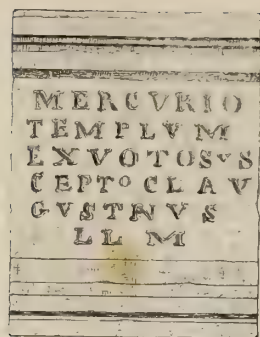 MERCVRIO
TEMPLVM
EXVOTOSVS
CEPTO CLAV
GVSTINVS
LLM